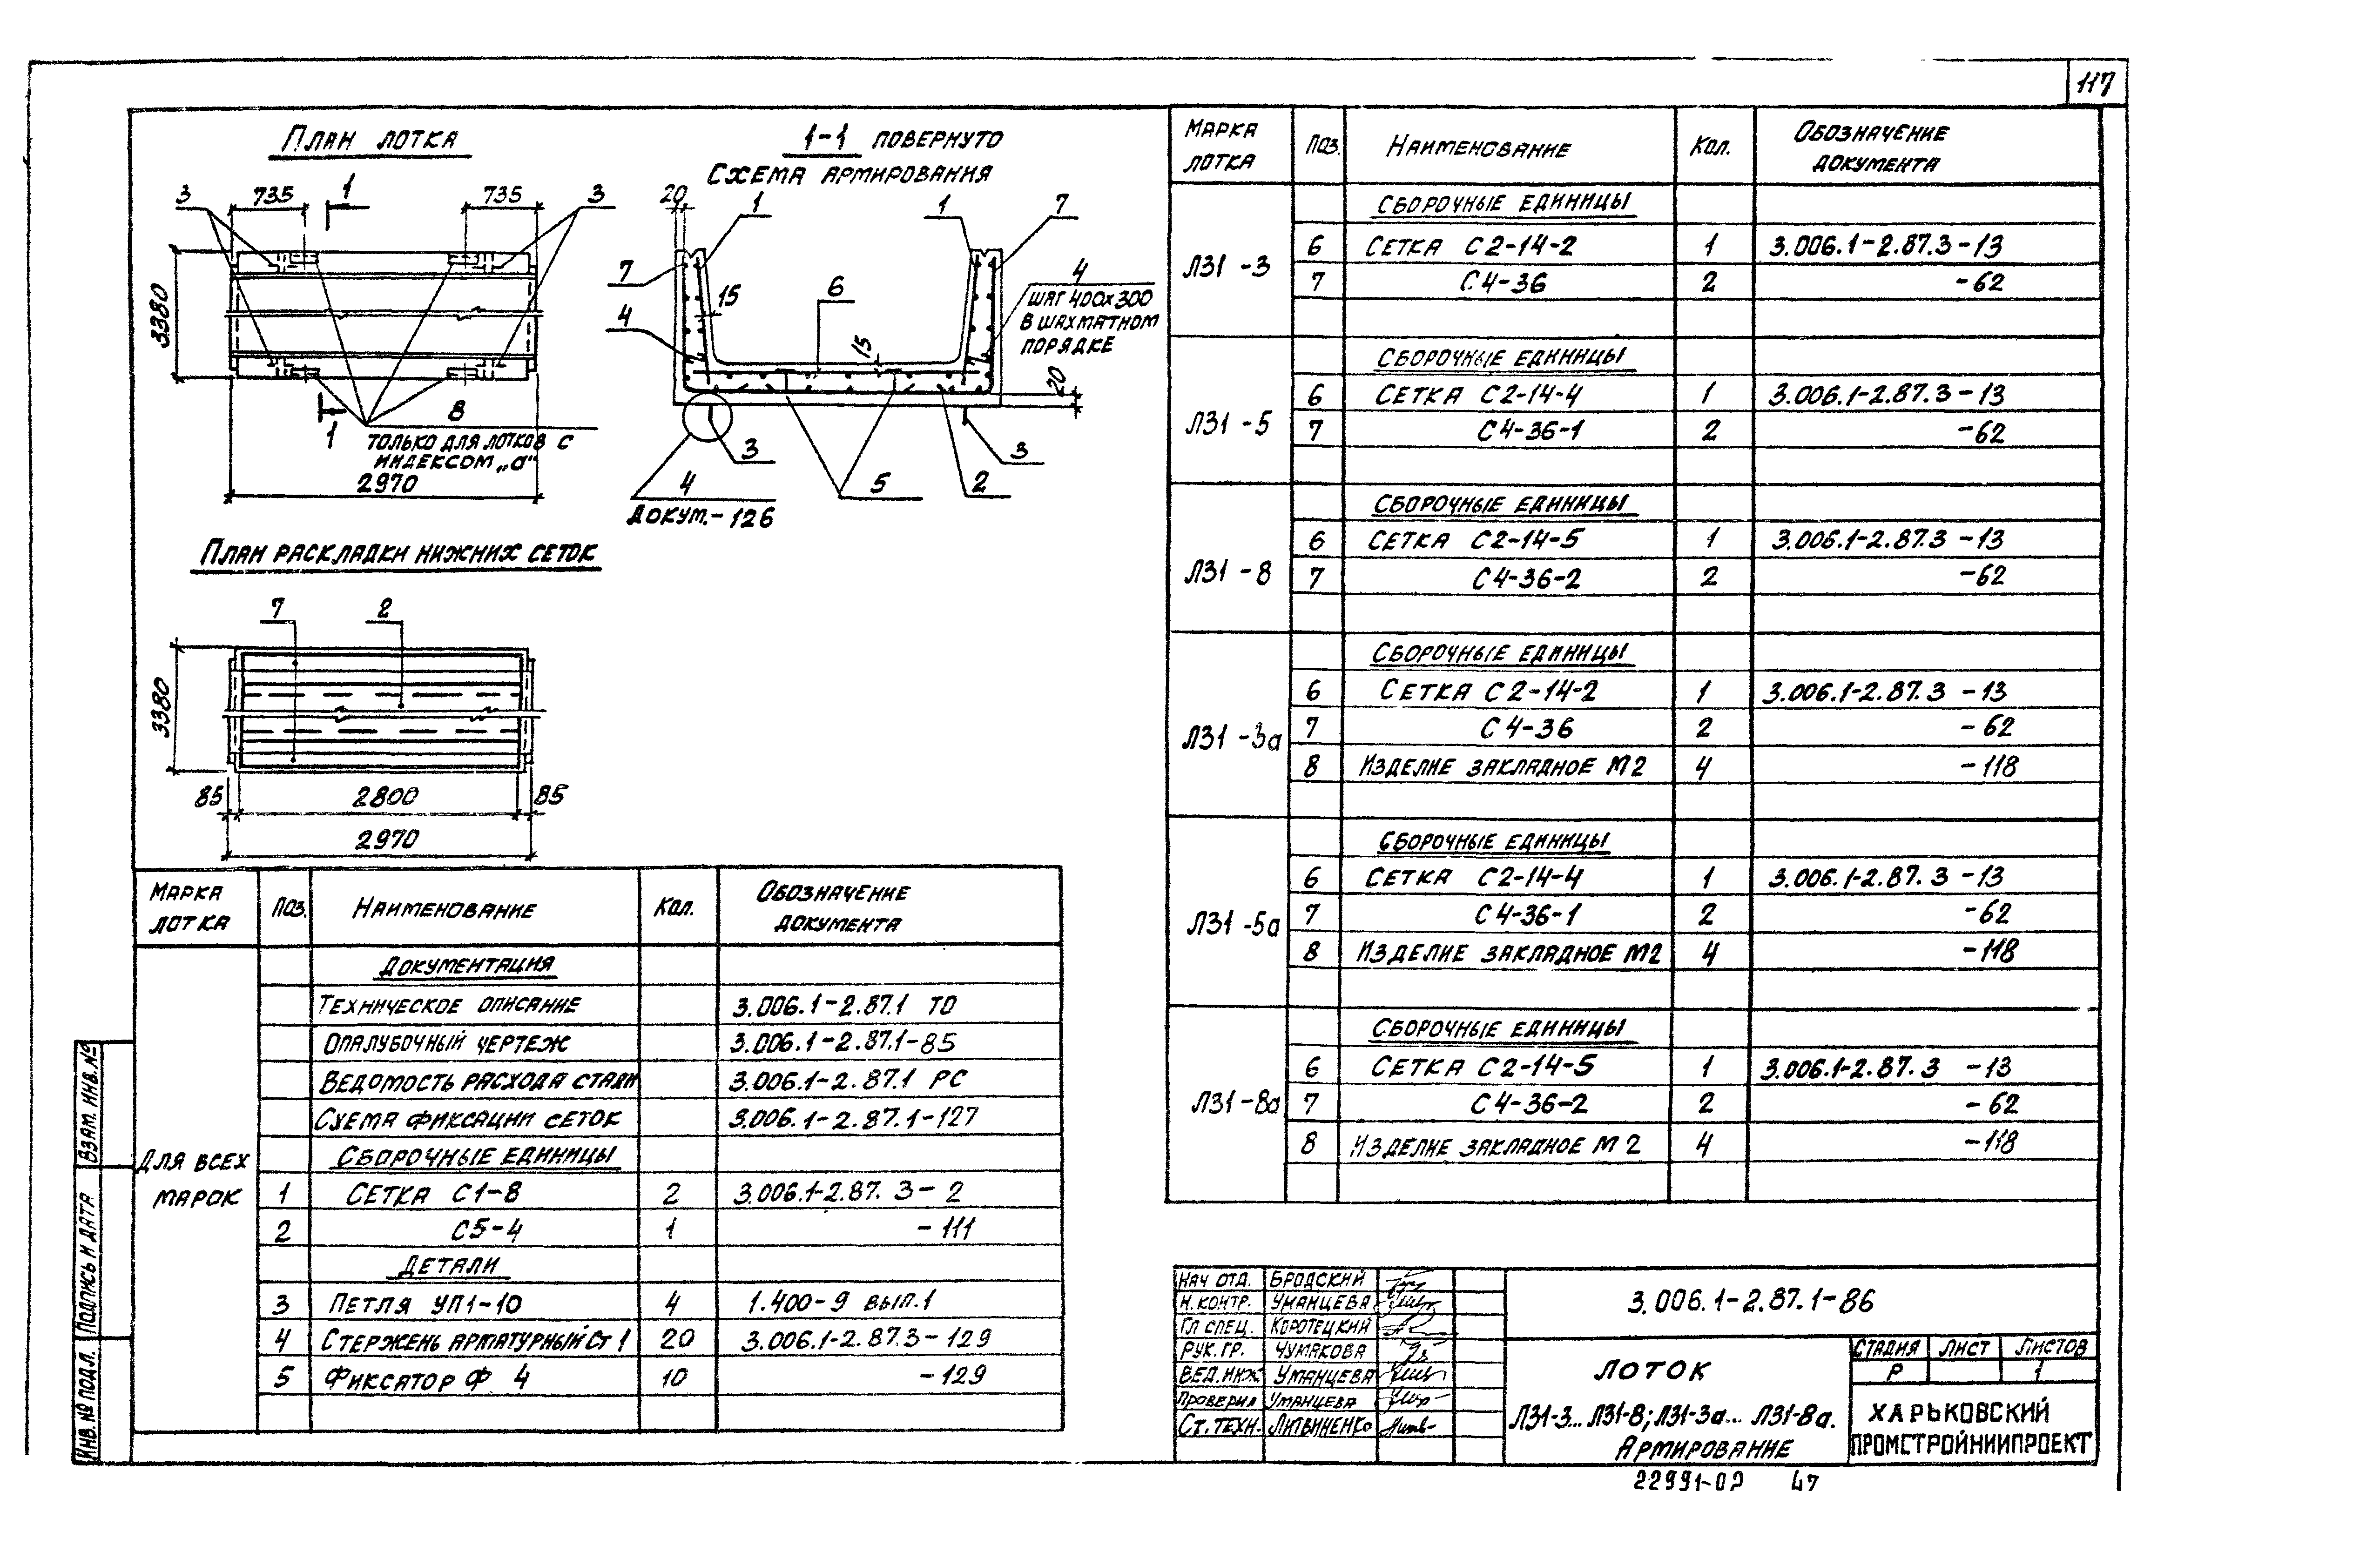 117
План лотка
3 735 1 735 3
3380
1
8
только для лотков с
индексом „а“
2970
1-1 повернуто
Схема армирования
20 1 1 7
7
15
6
4
4
шаг 400х300
в шахматном
порядке
15
20
3
3
4
5
2
Докум.-126
План раскладки нижних сеток
7 2
3380
85 2800 85
2970
Марка лотка Поз. Наименование Кол. Обозначение документа
Для всех марок
Документация
Техническое описание 3.006.1-2.87.1 ТО
Опалубочный чертеж 3.006.1-2.87.1-85
Ведомость расхода стали 3.006.1-2.87.1 РС
Схема фиксации сеток 3.006.1-2.87.1-127
Сборочные единицы
1 Сетка С1-8 2 3.006.1-2.87.3-2
2 С5-4 1 -111
Детали
3 Петля УП1-10 4 1.400-9 вып.1
4 Стержень арматурный Ст 1 20 3.006.1-2.87.3-129
5 Фиксатор Ф 4 10 -129
Марка лотка Поз. Наименование Кол. Обозначение документа
Л31-3
Сборочные единицы
6 Сетка С2-14-2 1 3.006.1-2.87.3-13
7 С4-36 2 -62
Л31-5
Сборочные единицы
6 Сетка С2-14-4 1 3.006.1-2.87.3-13
7 С4-36-1 2 -62
Л31-8
Сборочные единицы
6 Сетка С2-14-5 1 3.006.1-2.87.3-13
7 С4-36-2 2 -62
Л31-3а
Сборочные единицы
6 Сетка С2-14-2 1 3.006.1-2.87.3-13
7 С4-36 2 -62
8 Изделие закладное М2 4 -118
Л31-5а
Сборочные единицы
6 Сетка С2-14-4 1 3.006.1-2.87.3-13
7 С4-36-1 2 -62
8 Изделие закладное М2 4 -118
Л31-8а
Сборочные единицы
6 Сетка С2-14-5 1 3.006.1-2.87.3-13
7 С4-36-2 2 -62
8 Изделие закладное М2 4 -118
Нач отд. Бродский
Н.контр. Уманцева
Гл спец. Коротецкий
Рук. гр. Чумакова
Вед. инж Уманцева
Проверил Уманцева
Ст. техн. Литвиненко
3.006.1-2.87.1-86
Лоток
Л31-3... Л31-8; Л31-3а... Л31-8а.
Армирование
Стадия Лист Листов
Р 1
Харьковский
Промстройниипроект
22991-02 47
Взам. инв. №
Подпись и дата
Инв. № подл.